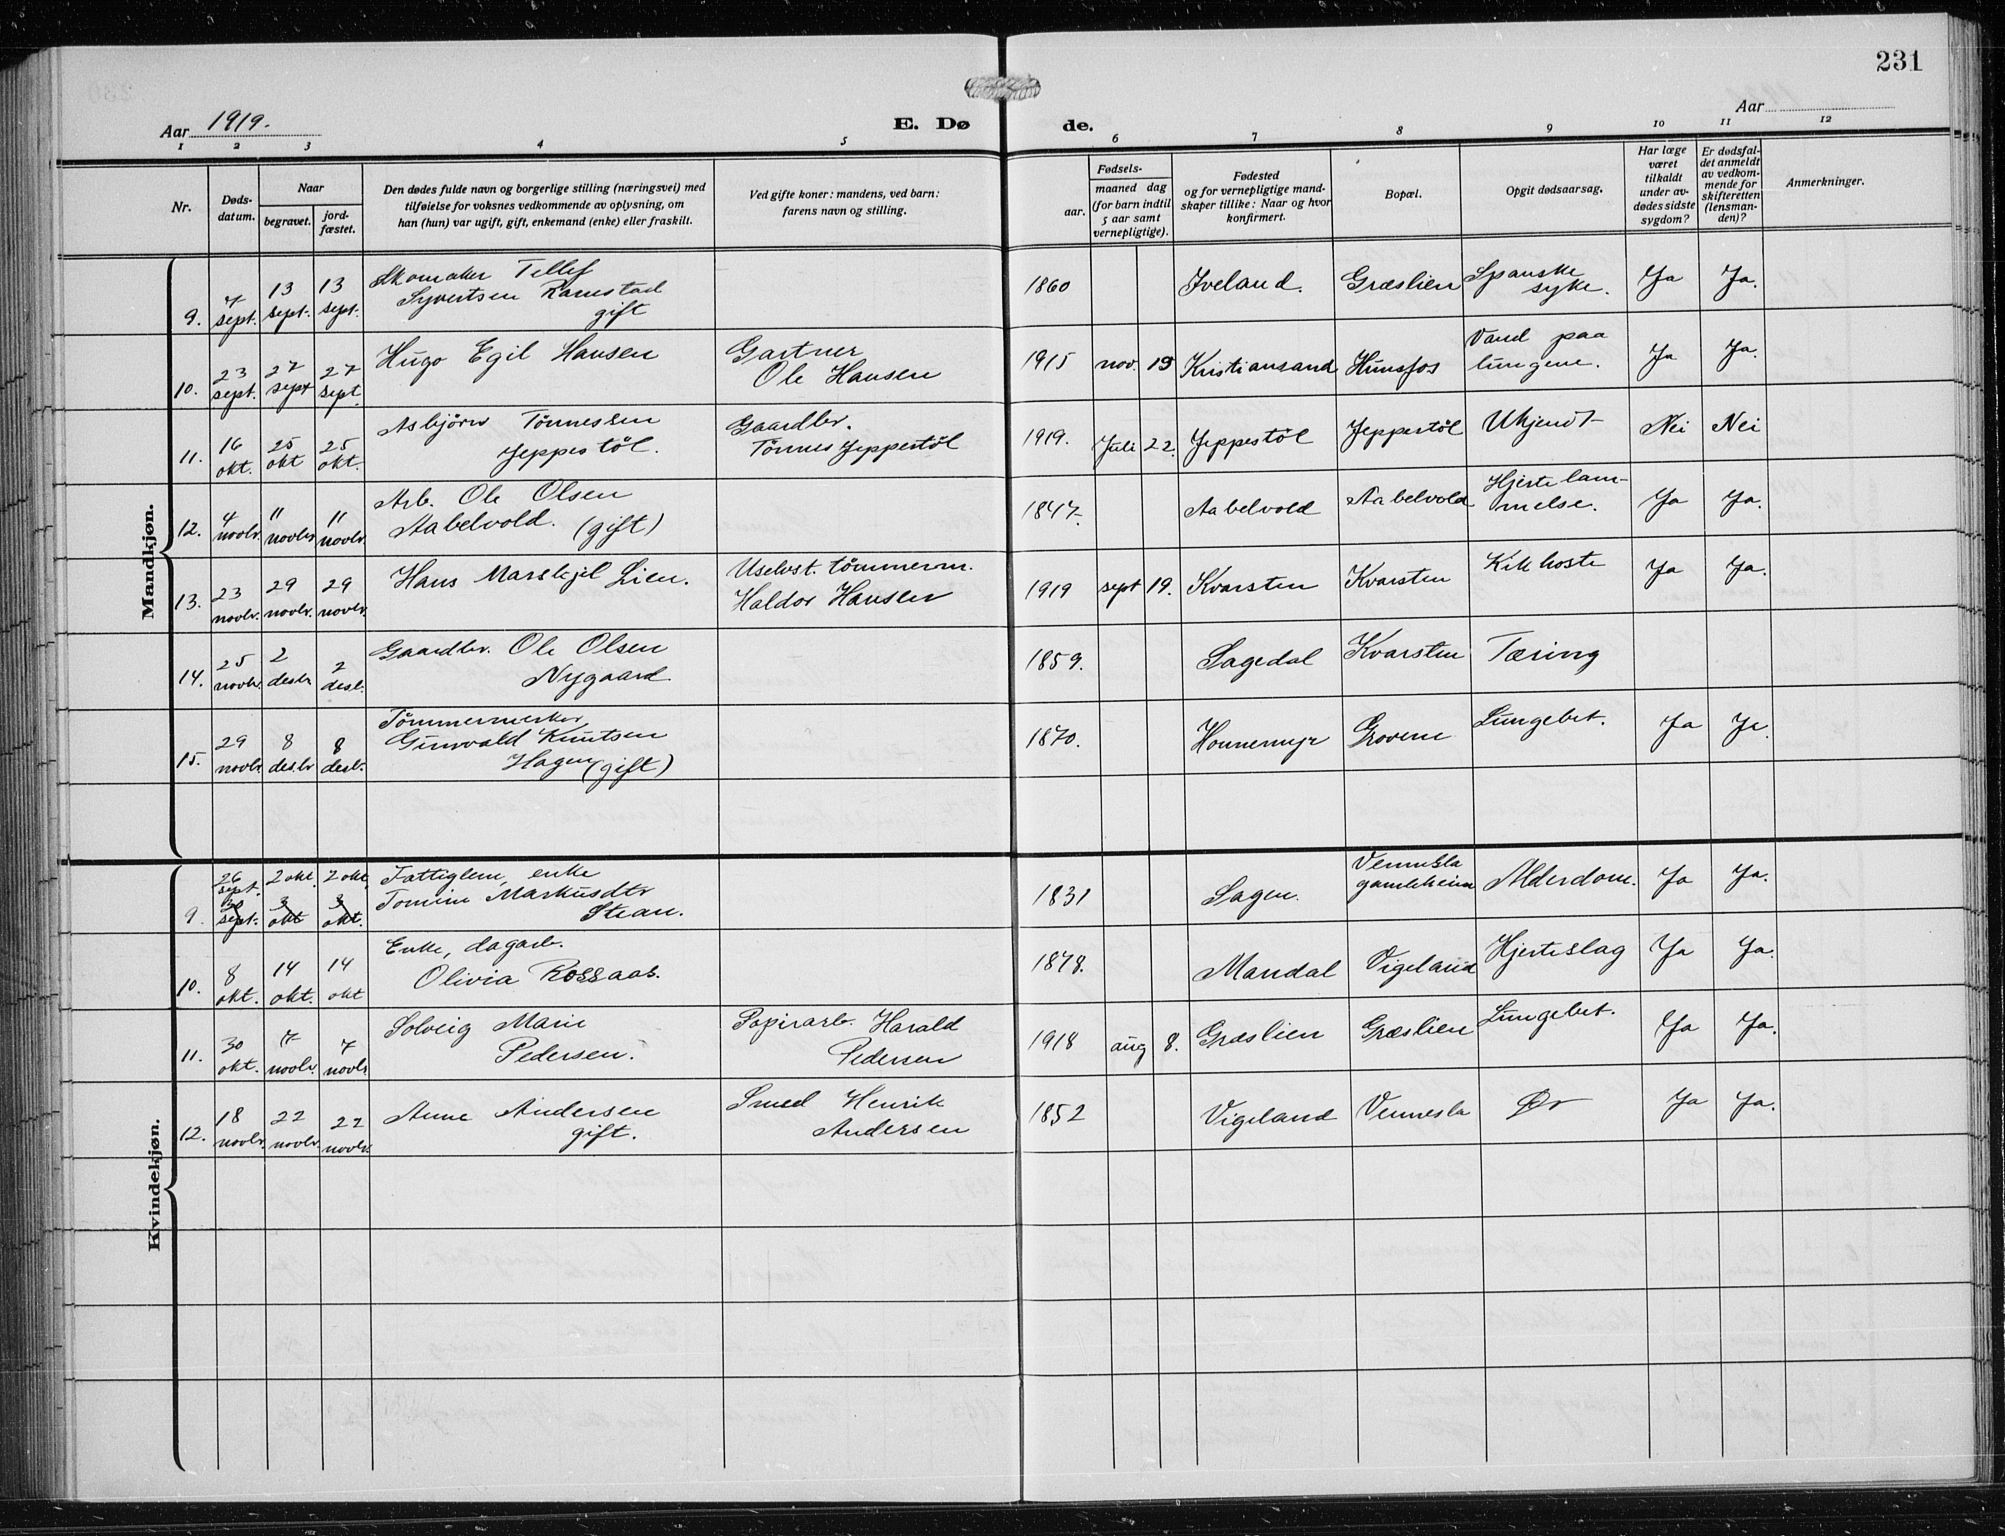 231
Aar 1919.
E. Dø
de.
Aar
1 2 3 4 5 6 7 8 9 10 11 12
Nr.
Døds-
datum.
Naar
begravet.
jord-
fæstet.
Den dødes fulde navn og borgerlige stilling (næringsvei) med
tilføielse for voksnes vedkommende av oplysning, om
han (hun) var ugift, gift, enkemand (enke) eller fraskilt.
Ved gifte koner: mandens, ved barn:
farens navn og stilling.
Fødsels-
aar.
maaned dag
(for barn indtil
5 aar samt
vernepligtige).
Fødested
og for vernepligtige mand-
skaper tillike: Naar og hvor
konfirmert.
Bopæl.
Opgit dødsaarsag.
Har læge
været
tilkaldt
under av-
dødes sidste
sygdom?
Er dødsfal-
det anmeldt
av vedkom-
mende for
skifteretten
(lensman-
den)?
Anmerkninger.
Mandkjøn.
9. 7 sept. 13 sept. 13 sept. Skomaker Tellef
Syvertsen Ramstad
gift
1860 Iveland. Græslien Spanske
syke. Ja Ja.
10. 23 sept. 27 sept 27 sept. Hugo Egil Hansen
Gartner
Ole Hansen
1915 nov. 15 Kristiansand Hunsfos Vand paa
lungene. Ja Ja.
11. 16 okt. 25 okt 25 okt. Asbjørn Tønnessen
Jeppestøl.
Gaardbr.
Tønnes Jeppestøl
1919. Juli 22. Jeppestøl Jeppestøl Ukjendt Nei Nei
12. 4 novbr. 11 novbr 11 novbr. Arb. Ole Olsen
Aabelvold. (gift)
1847. Aabelvold Aabelvold Hjertelam-
melse. Ja Ja.
13. 23 novbr. 29 novbr. 29 novbr. Hans Marskjel Lien.
Uselvst. tømmerm.
Haldor Hansen
1919 sept 19. Kvarsten Kvarsten Kikhoste Ja Ja.
14. 25 novbr. 2 desbr 2 desb. Gaardbr. Ole Olsen
Nygaard
1859. Sagedal Kvarsten Tæring
15. 29 novbr 8 desbr 8 desb. Tømmermerker
Gunvald Knutsen
Hagen (gift)
1870. Honnemyr Grovene Lungebet. Ja Ja.
Kvindekjøn.
9. 26 sept. 2 okt. 2 okt. Fattiglem, enke
30 sept. 3 okt 3 okt. Tomine Markusdtr
Stean.
1831 Sagen. Vennesla
gamleheim Alderdom. Ja Ja.
10. 8 okt. 14 okt. 14 okt Enke, dagarb.
Olivia Rossaas.
1878. Mandal Vigeland Hjerteslag Ja Ja.
11. 30 okt. 7 novbr. 7 novbr Solveig Marie
Pedersen.
Papirarb. Harald
Pedersen
1918 aug 8. Græslien Græslien Lungebet. Ja Ja.
12. 18 novbr. 22 novbr 22 novbr. Anne Andersen
gift.
Smed Henrik
Andersen
1852 Vigeland Vennesla Ør Ja Ja.